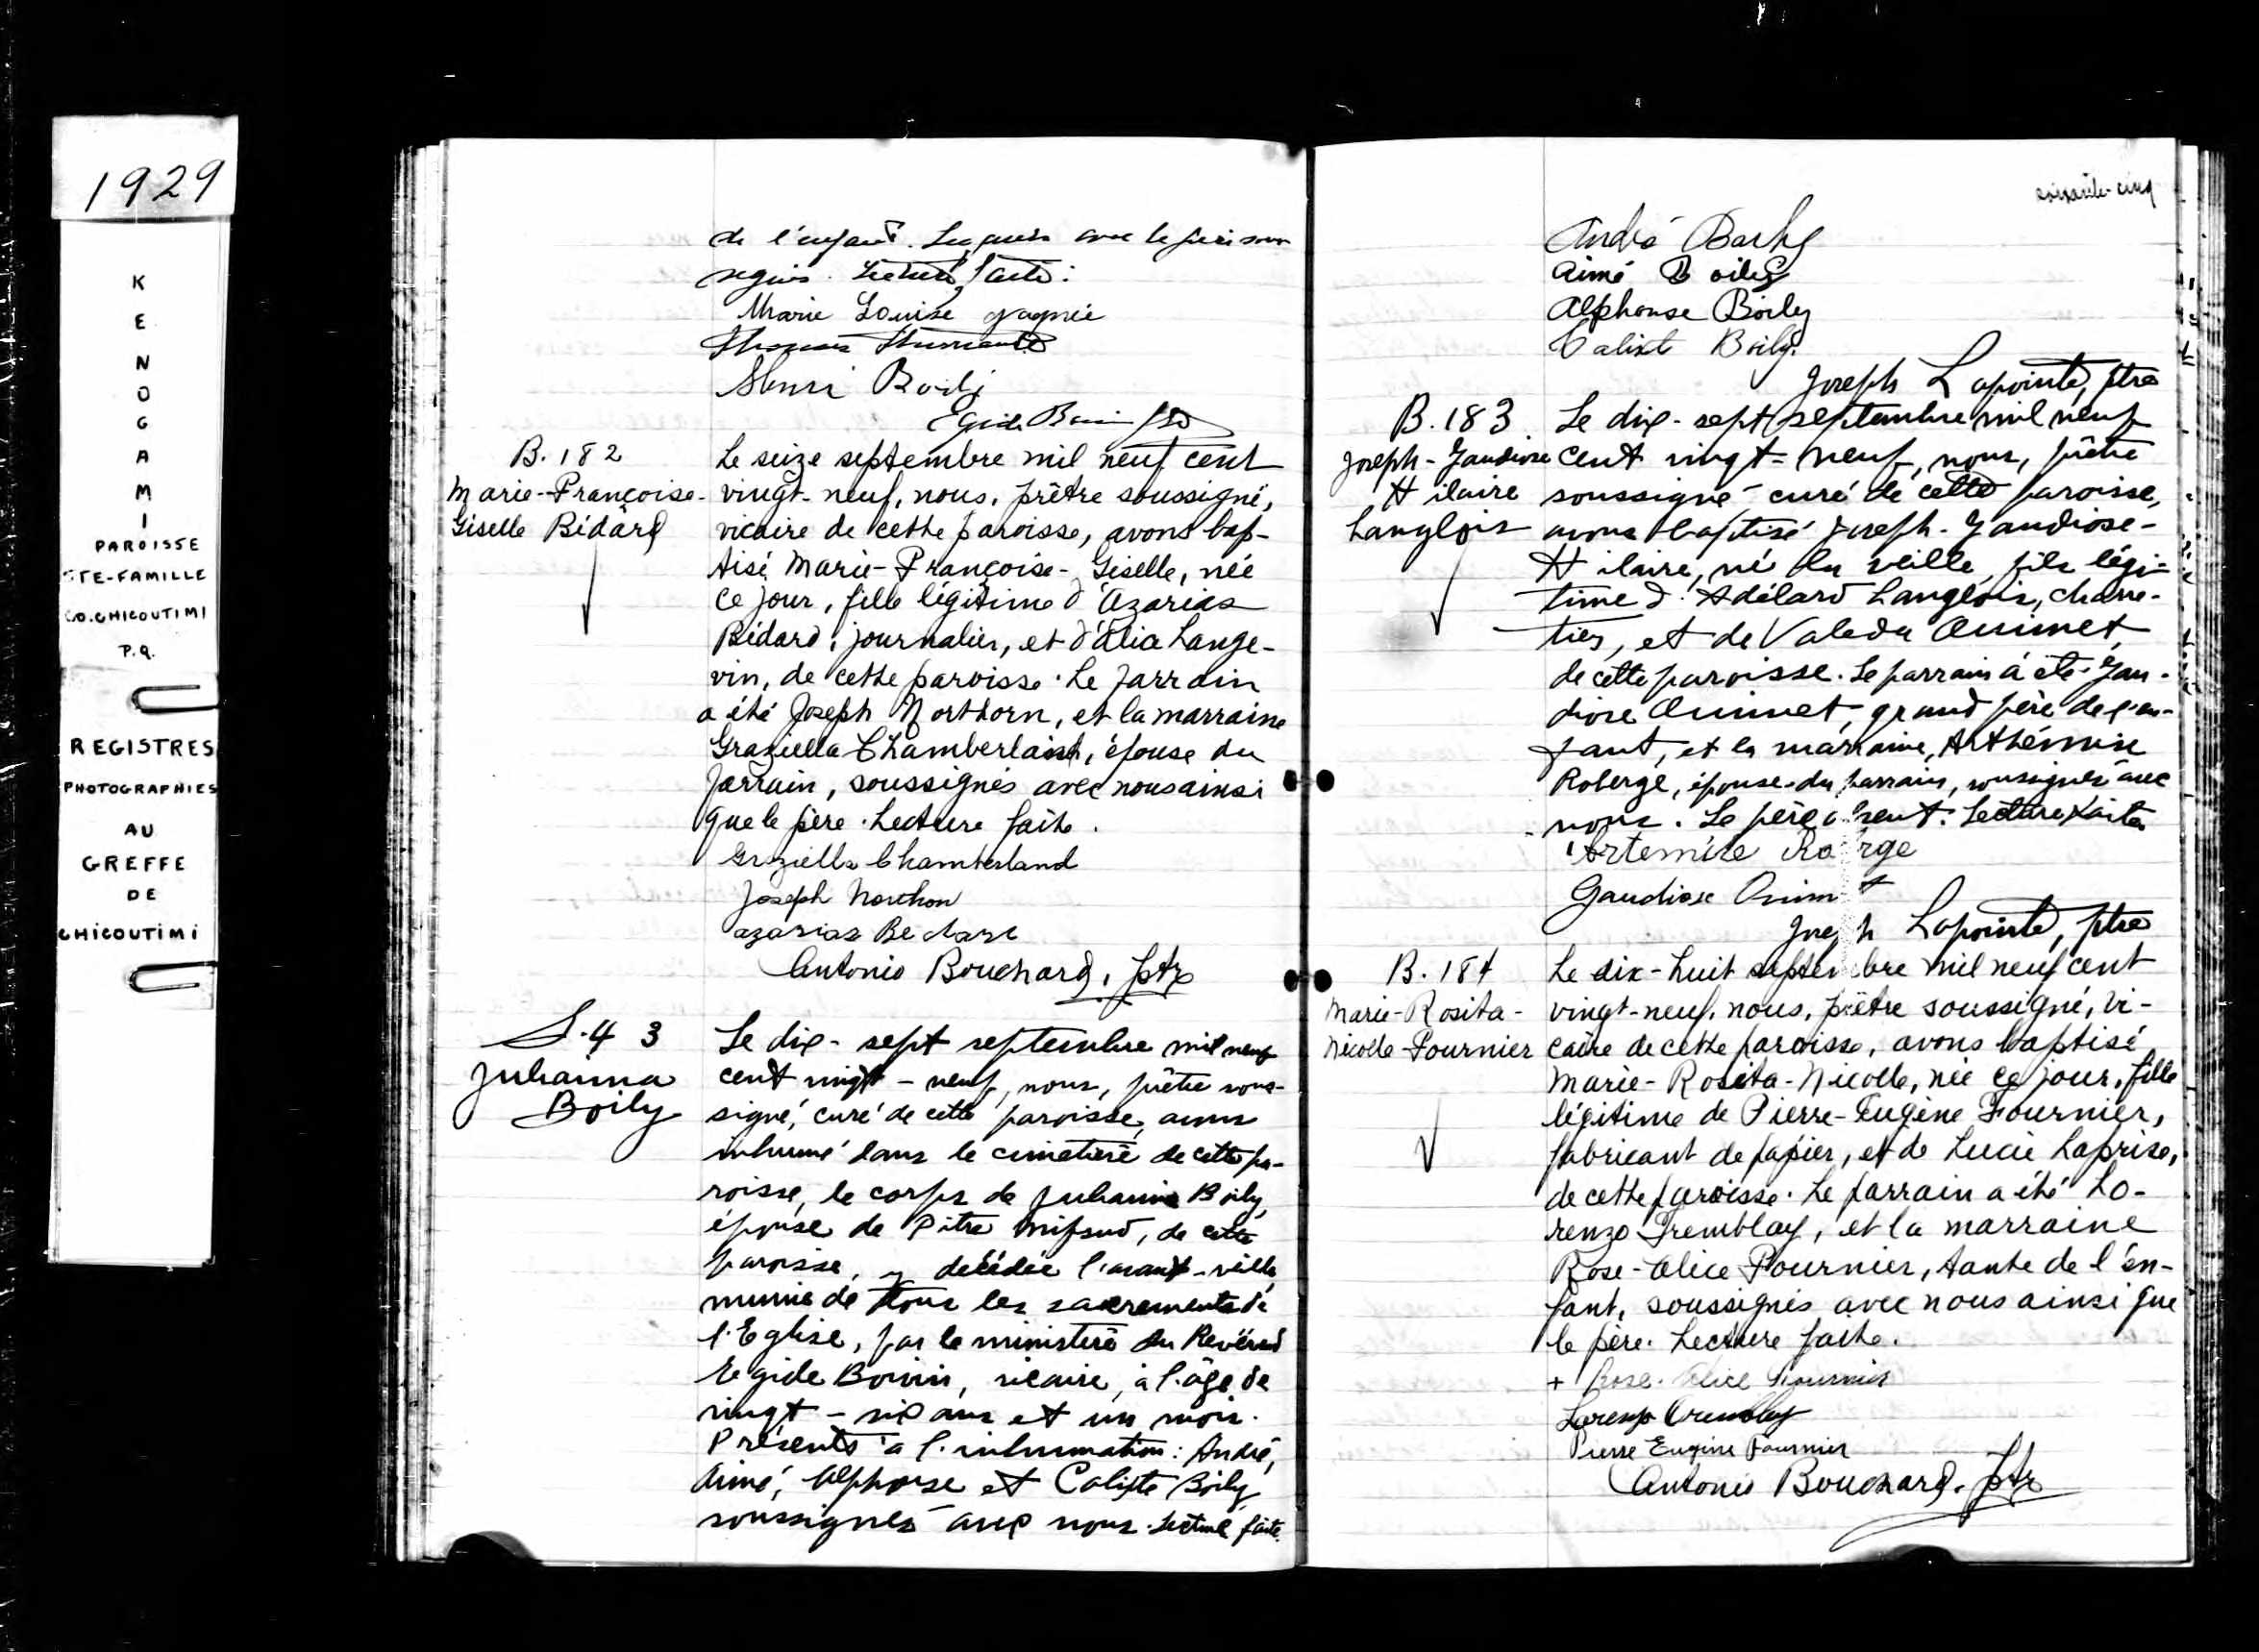 1929
KENOGAMI
PAROISSE
STE-FAMILLE
CO. CHICOUTIMI
P.Q.
REGISTRES
PHOTOGRAPHIES
AU
GREFFE
DE
CHICOUTIMI
de l'enfant. Lesquels avec le père sous
signés. Lecture faite:
Marie Louise Gagnée
Henri Boily
Egide Boivin ptre
B. 182
Marie-Françoise-
Giselle Bédard
Le seize septembre mil neuf cent
vingt-neuf, nous, prêtre soussigné,
vicaire de cette paroisse, avons bap-
tisé Marie-Françoise-Giselle, née
ce jour, fille légitime d'Azarias
Bédard, journalier, et d'Alice Lange-
vin, de cette paroisse. Le parrain
a été Joseph Northorn, et la marraine
Graziella Chamberland, épouse du
parrain, soussignés avec nous ainsi
que le père. Lecture faite.
Graziella Chamberland
Joseph Northon
azarias Bedard
Antonio Bouchard, ptr
S. 43
Julianna
Boily
Le dix-sept septembre mil neuf
cent vingt-neuf, nous, prêtre sous-
signé, curé de cette paroisse, avons
inhumé dans le cimetière de cette pa-
roisse, le corps de Julianna Boily,
épouse de Pitre Mifsud, de cette
paroisse, y décédée l'avant-veille,
munie de tous les sacrements de
l'Eglise, par le ministère du Révérend
Egide Boivin, vicaire, à l'âge de
vingt-six ans et un mois.
Présents à l'inhumation: André,
Aimé, Alphonse et Calixte Boily
soussignés avec nous. Lecture faite.
soixante-cinq
André Boily
Aimé Boily
Alphonse Boily
Calixt Boily.
Joseph Lapointe, ptre
B. 183
Joseph-Gaudiose
Hilaire
Langlois
Le dix-sept septembre mil neuf
cent vingt-neuf, nous, prêtre
soussigné curé de cette paroisse,
avons baptisé Joseph-Gaudiose-
Hilaire, né la veille, fils légi-
time d'Adélard Langlois, charre-
tier, et de Valeda Ouimet,
de cette paroisse. Le parrain a été Gau-
diose Ouimet, grand père de l'en-
fant, et la marraine, Arthémise
Roberge, épouse du parrain, soussignés avec
nous. Le père absent. Lecture faite
Artemise Roberge
Gaudiose Ouimet
Joseph Lapointe, ptre
B. 184
Marie-Rosita-
Nicolle Fournier
Le dix-huit septembre mil neuf cent
vingt-neuf, nous, prêtre soussigné, vi-
caire de cette paroisse, avons baptisé
Marie-Rosita-Nicolle, née ce jour, fille
légitime de Pierre-Eugène Fournier,
fabricant de papier, et de Lucie Laprise,
de cette paroisse. Le parrain a été Lo-
renzo Tremblay, et la marraine
Rose-Alice Fournier, tante de l'en-
fant, soussignés avec nous ainsi que
le père. Lecture faite.
+ Rose-Alice Fournier
Lorenzo Tremblay
Pierre Eugène Fournier
Antonio Bouchard, ptr